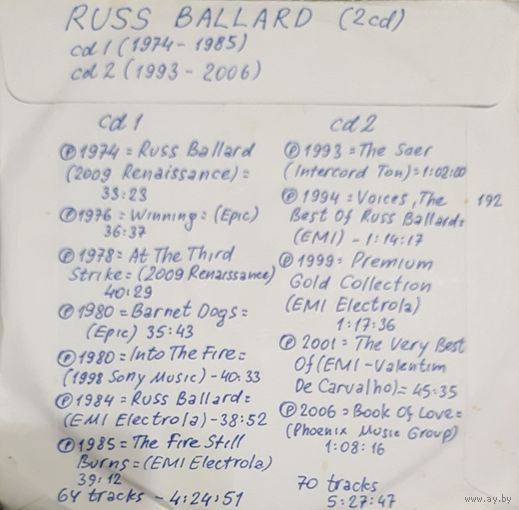 RUSS BALLARD (2cd)
cd1 (1974 - 1985)
cd2 (1993 - 2006)
cd1
Ⓟ 1974 = Russ Ballard
(2009 Renaissance) =
33:23
Ⓟ 1976 = Winning = (Epic)
36:37
Ⓟ 1978 = At The Third
Strike = (2009 Renaissance)
40:29
Ⓟ 1980 = Barnet Dogs =
(Epic) 35:43
Ⓟ 1980 = Into The Fire =
(1998 Sony Music) - 40:33
Ⓟ 1984 = Russ Ballard =
(EMI Electrola) - 38:52
Ⓟ 1985 = The Fire Still
Burns = (EMI Electrola)
39:12
64 tracks - 4:24:51
cd2
Ⓟ 1993 = The Seer
(Intercord Ton) = 1:02:00
Ⓟ 1994 = Voices, The
Best Of Russ Ballard =
(EMI) - 1:14:17
Ⓟ 1999 = Premium
Gold Collection
(EMI Electrola)
1:17:36
Ⓟ 2001 = The Very Best
Of (EMI - Valentim
De Carvalho) = 45:35
Ⓟ 2006 = Book Of Love =
(Phoenix Music Group)
1:08:16
70 tracks
5:27:47
192
www.ay.by